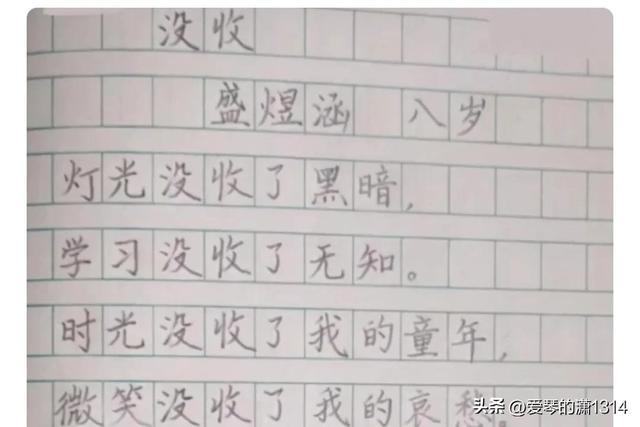 没收
盛煜涵 八岁
灯光没收了黑暗,
学习没收了无知。
时光没收了我的童年,
微笑没收了我的哀愁。
头条 @爱琴的潇1314